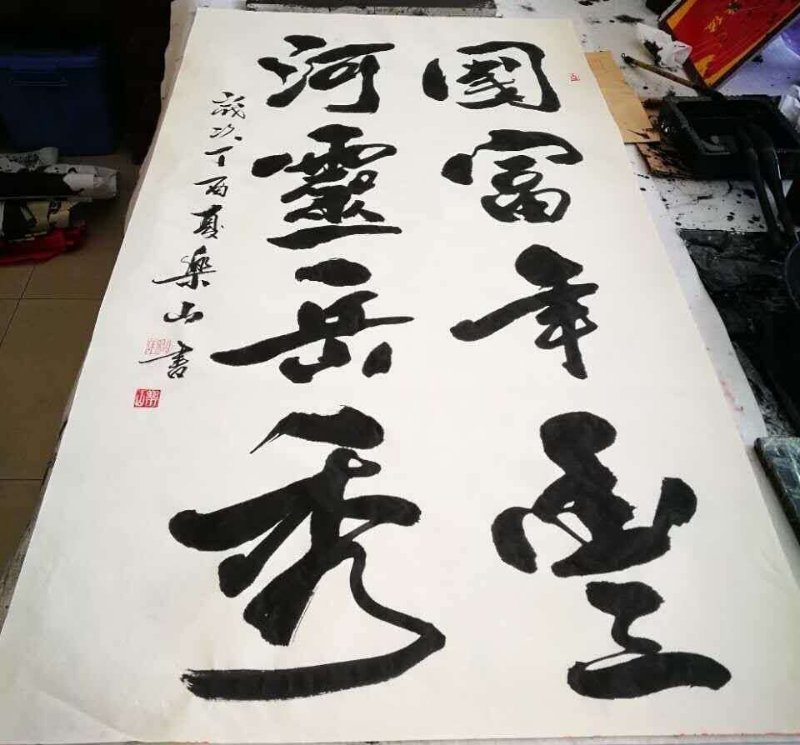 國富年豐
河靈岳秀
歲次丁酉夏樂山書